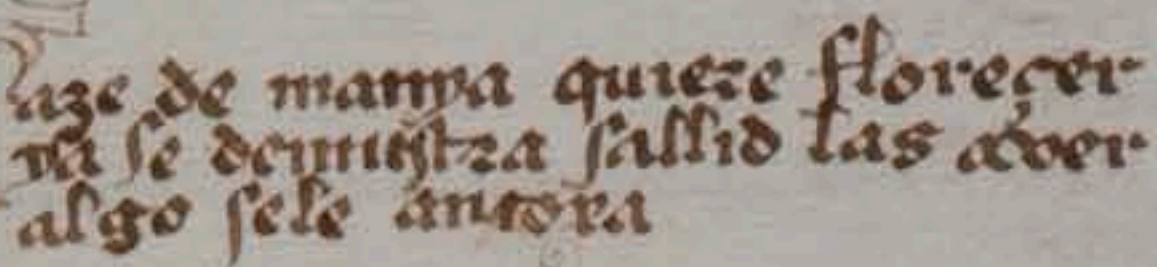 de manya quiere floreçer
ya se demuestra sallid las a ver
algo se le antoxa